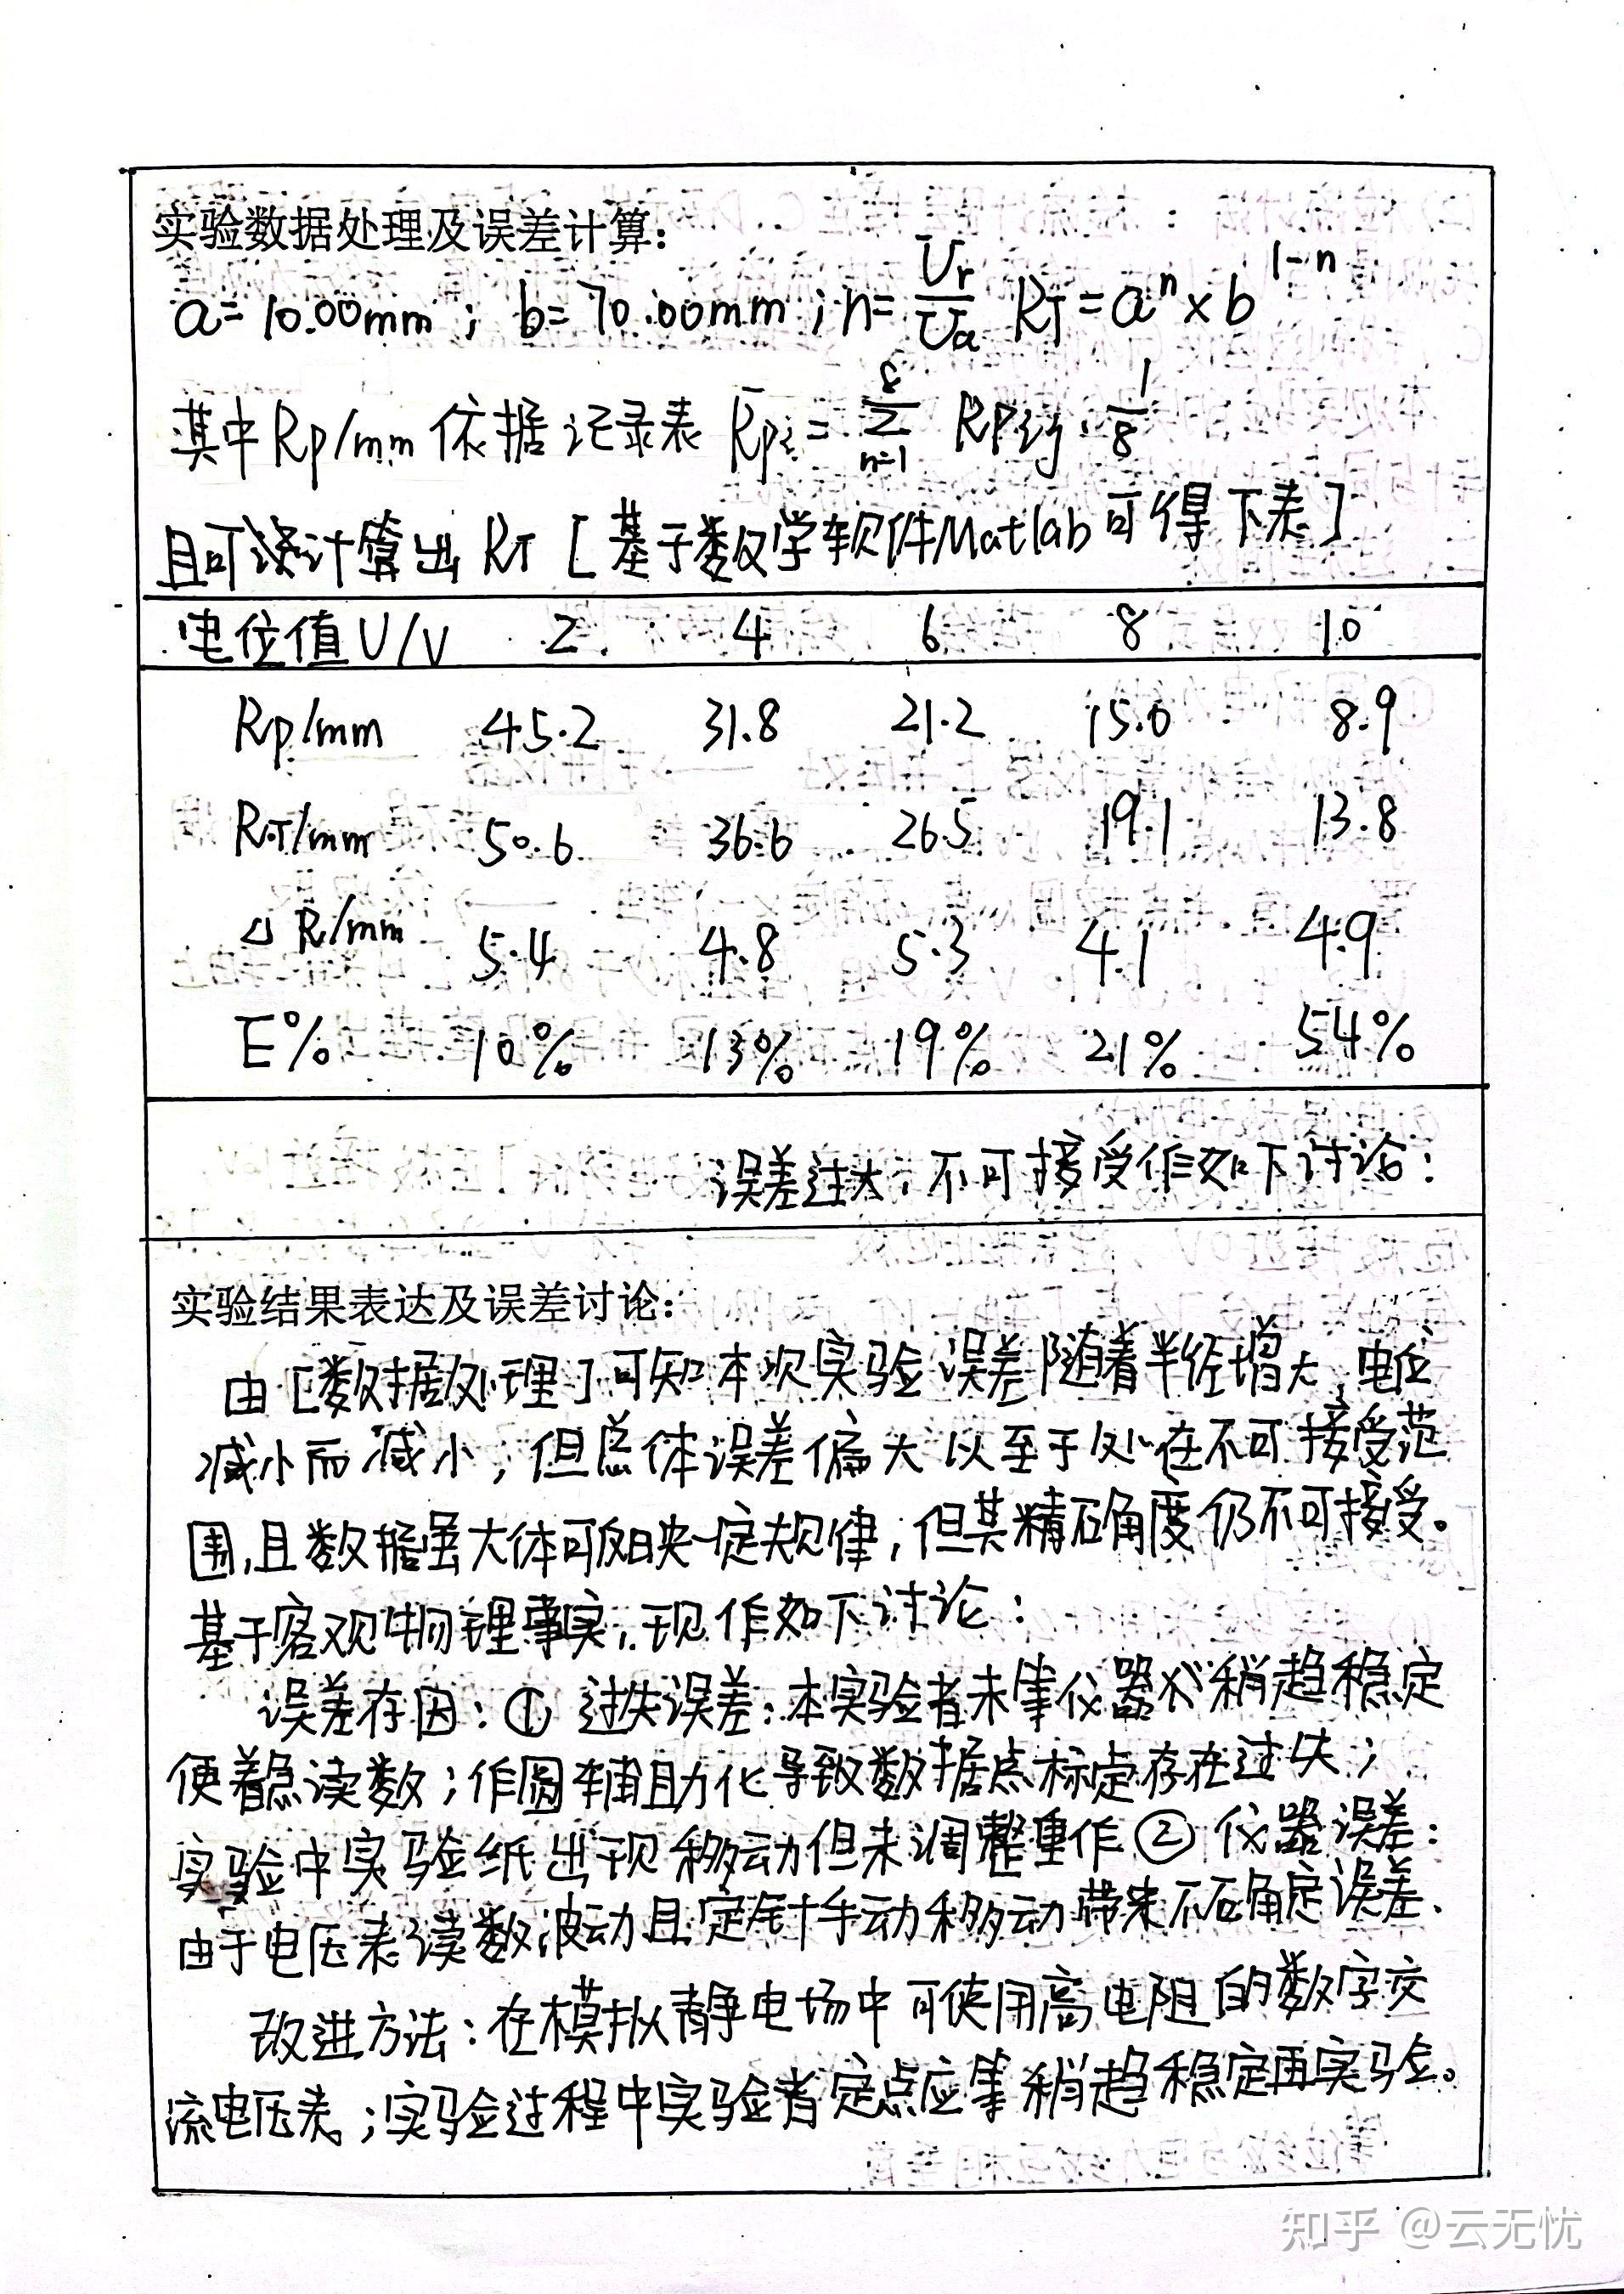 实验数据处理及误差计算:
a=10.00mm; b=70.00mm; n=Ur/Ua RT=aⁿ×b¹⁻ⁿ
其中Rp/mm 依据记录表 R̄pi=∑(n=1→8) RPij·1/8
且可计算出 RT [基于数学软件Matlab可得下表]
电位值U/V 2 4 6 8 10
Rp/mm 45.2 31.8 21.2 15.0 8.9
RT/mm 50.6 36.6 26.5 19.1 13.8
△R/mm 5.4 4.8 5.3 4.1 4.9
E% 10% 13% 19% 21% 54%
误差过大,不可接受作如下讨论:
实验结果表达及误差讨论:
由[数据处理]可知本次实验误差随着半径增大,电位
减小而减小,但总体误差偏大以至于处在不可接受范
围,且数据虽大体可反映一定规律,但其精确度仍不可接受。
基于客观物理事实,现作如下讨论:
误差存因:① 过失误差:本实验者未等仪器稍趋稳定
便着急读数;作圆辅助化导致数据点标定存在过失;
实验中实验纸出现移动但未调整重作 ② 仪器误差:
由于电压表读数波动且定针手动移动带来不确定误差.
改进方法:在模拟静电场中可使用高电阻的数字交
流电压表;实验过程中实验者定点应等稍趋稳定再实验。
知乎 @云无忧